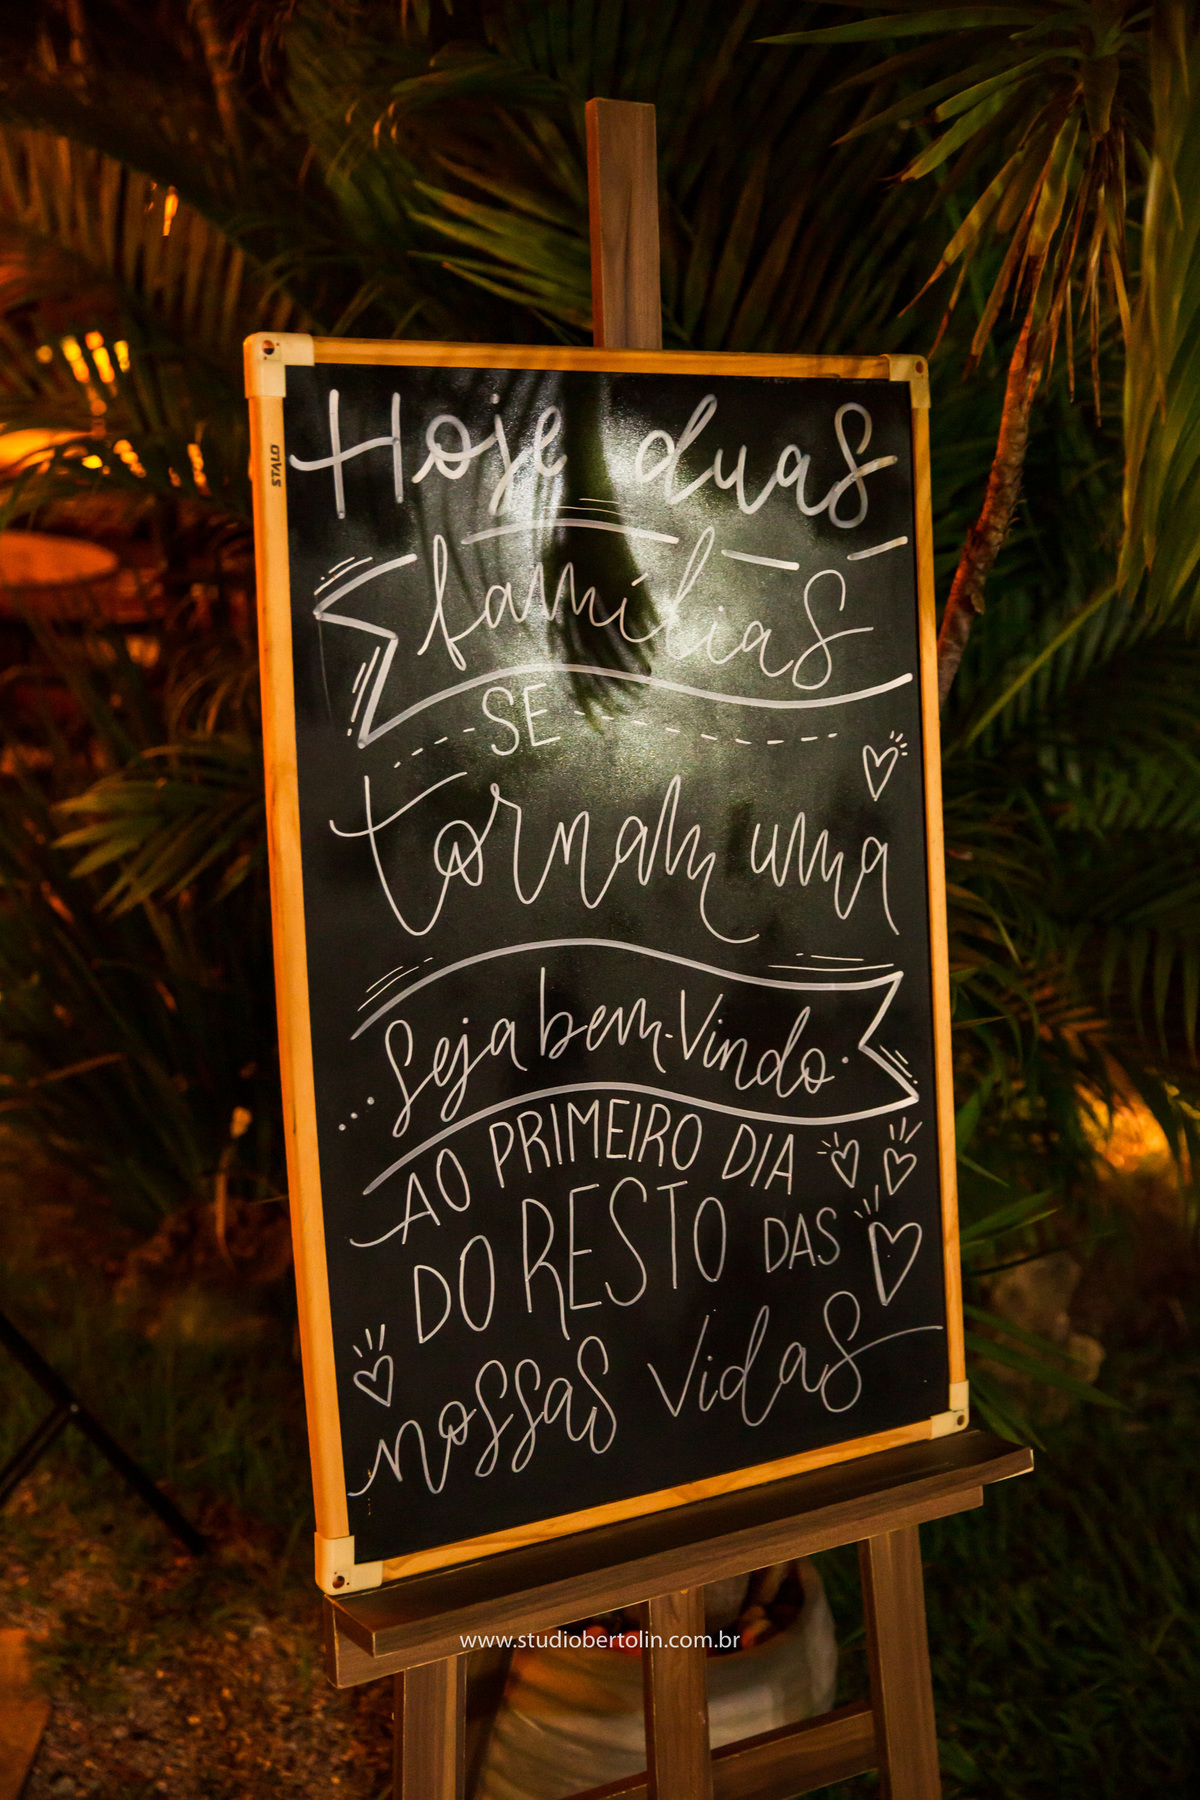 STALO
Hoje duas
famílias
SE
tornam uma
Seja bem-Vindo
AO PRIMEIRO DIA
DO RESTO DAS
nossas vidas
www.studiobertolin.com.br